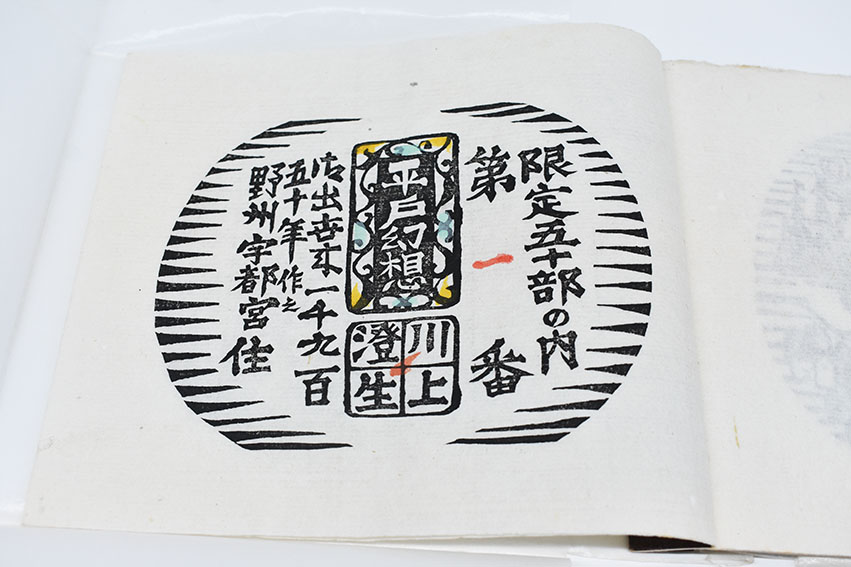 限定五十部の内
第一番
平戸幻想
川上
澄生
一千九百
五十年作之
野州宇都宮住